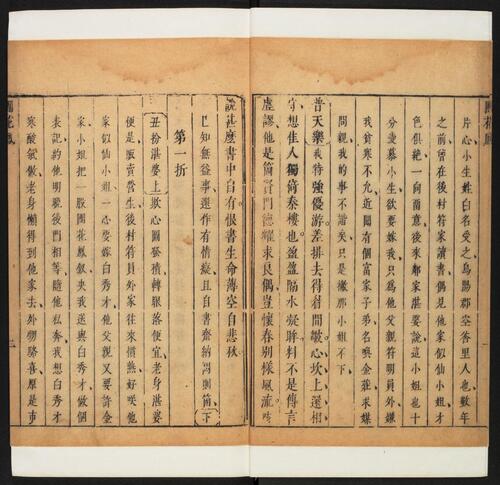 片心小生姓白名受之烏陽郡空谷里人也數年
之前曾在後村符家讀書偶見他家似仙小姐才
色俱絕一向留意後來鄰家湛婆說這小姐也十
分愛慕小生欲要嫁我只為他父親符明員外嫌
我貧寒不允近聞有個富家子弟名喚金莊求媒
問親我的事不諧矣只是撇那小姐不下
普天樂我待強優游差排去得君閒散心坎上還相
守想佳人獨倚秦樓也盈盈臨水凝眸料不是傳言
虛謬他是箇賢門德耀求良偶豈懷春別樣風流
說甚麼書中自有恨書生命薄空自悲秋
已知無益事還作有情癡且自書齋納悶則箇下
第一折
丑扮湛婆上歎心圖藝積轉眼落便宜老身湛婆
便是販賣營生後村符員外家往來慣熟好笑他
家似仙小姐一心要嫁白秀才他父親又要許金
家小姐把一股團花鳳釵央我送與白秀才做個
表記約他明晚後門相等隨他私奔我想白秀才
寒酸氣做老身懶得到他家去外甥駱喜原是市
團花鳳